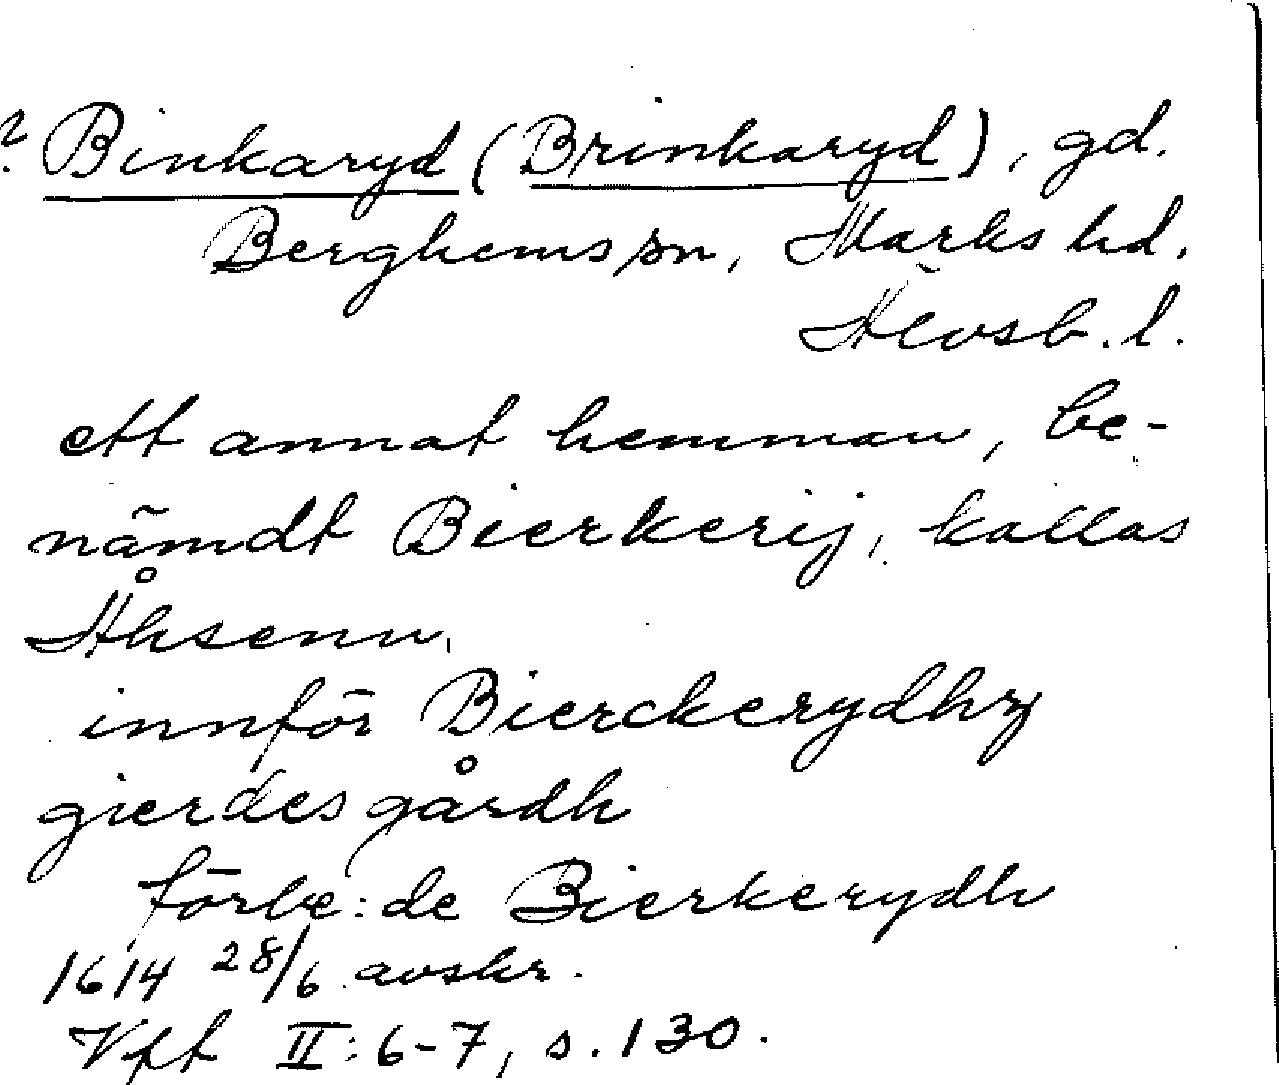 ? Binkaryd (Brinkaryd), gd.
Berghems sn, Marks hd.
Älvsb. l.
ett annat hemman, be-
nämdt Bierkerij, kallas
Åhsenn,
innför Bierckerydhz
gierdesgårdh
förbe:de Bierkerydh
1614 28/6 avskr.
Vft II:6-7, s. 130.